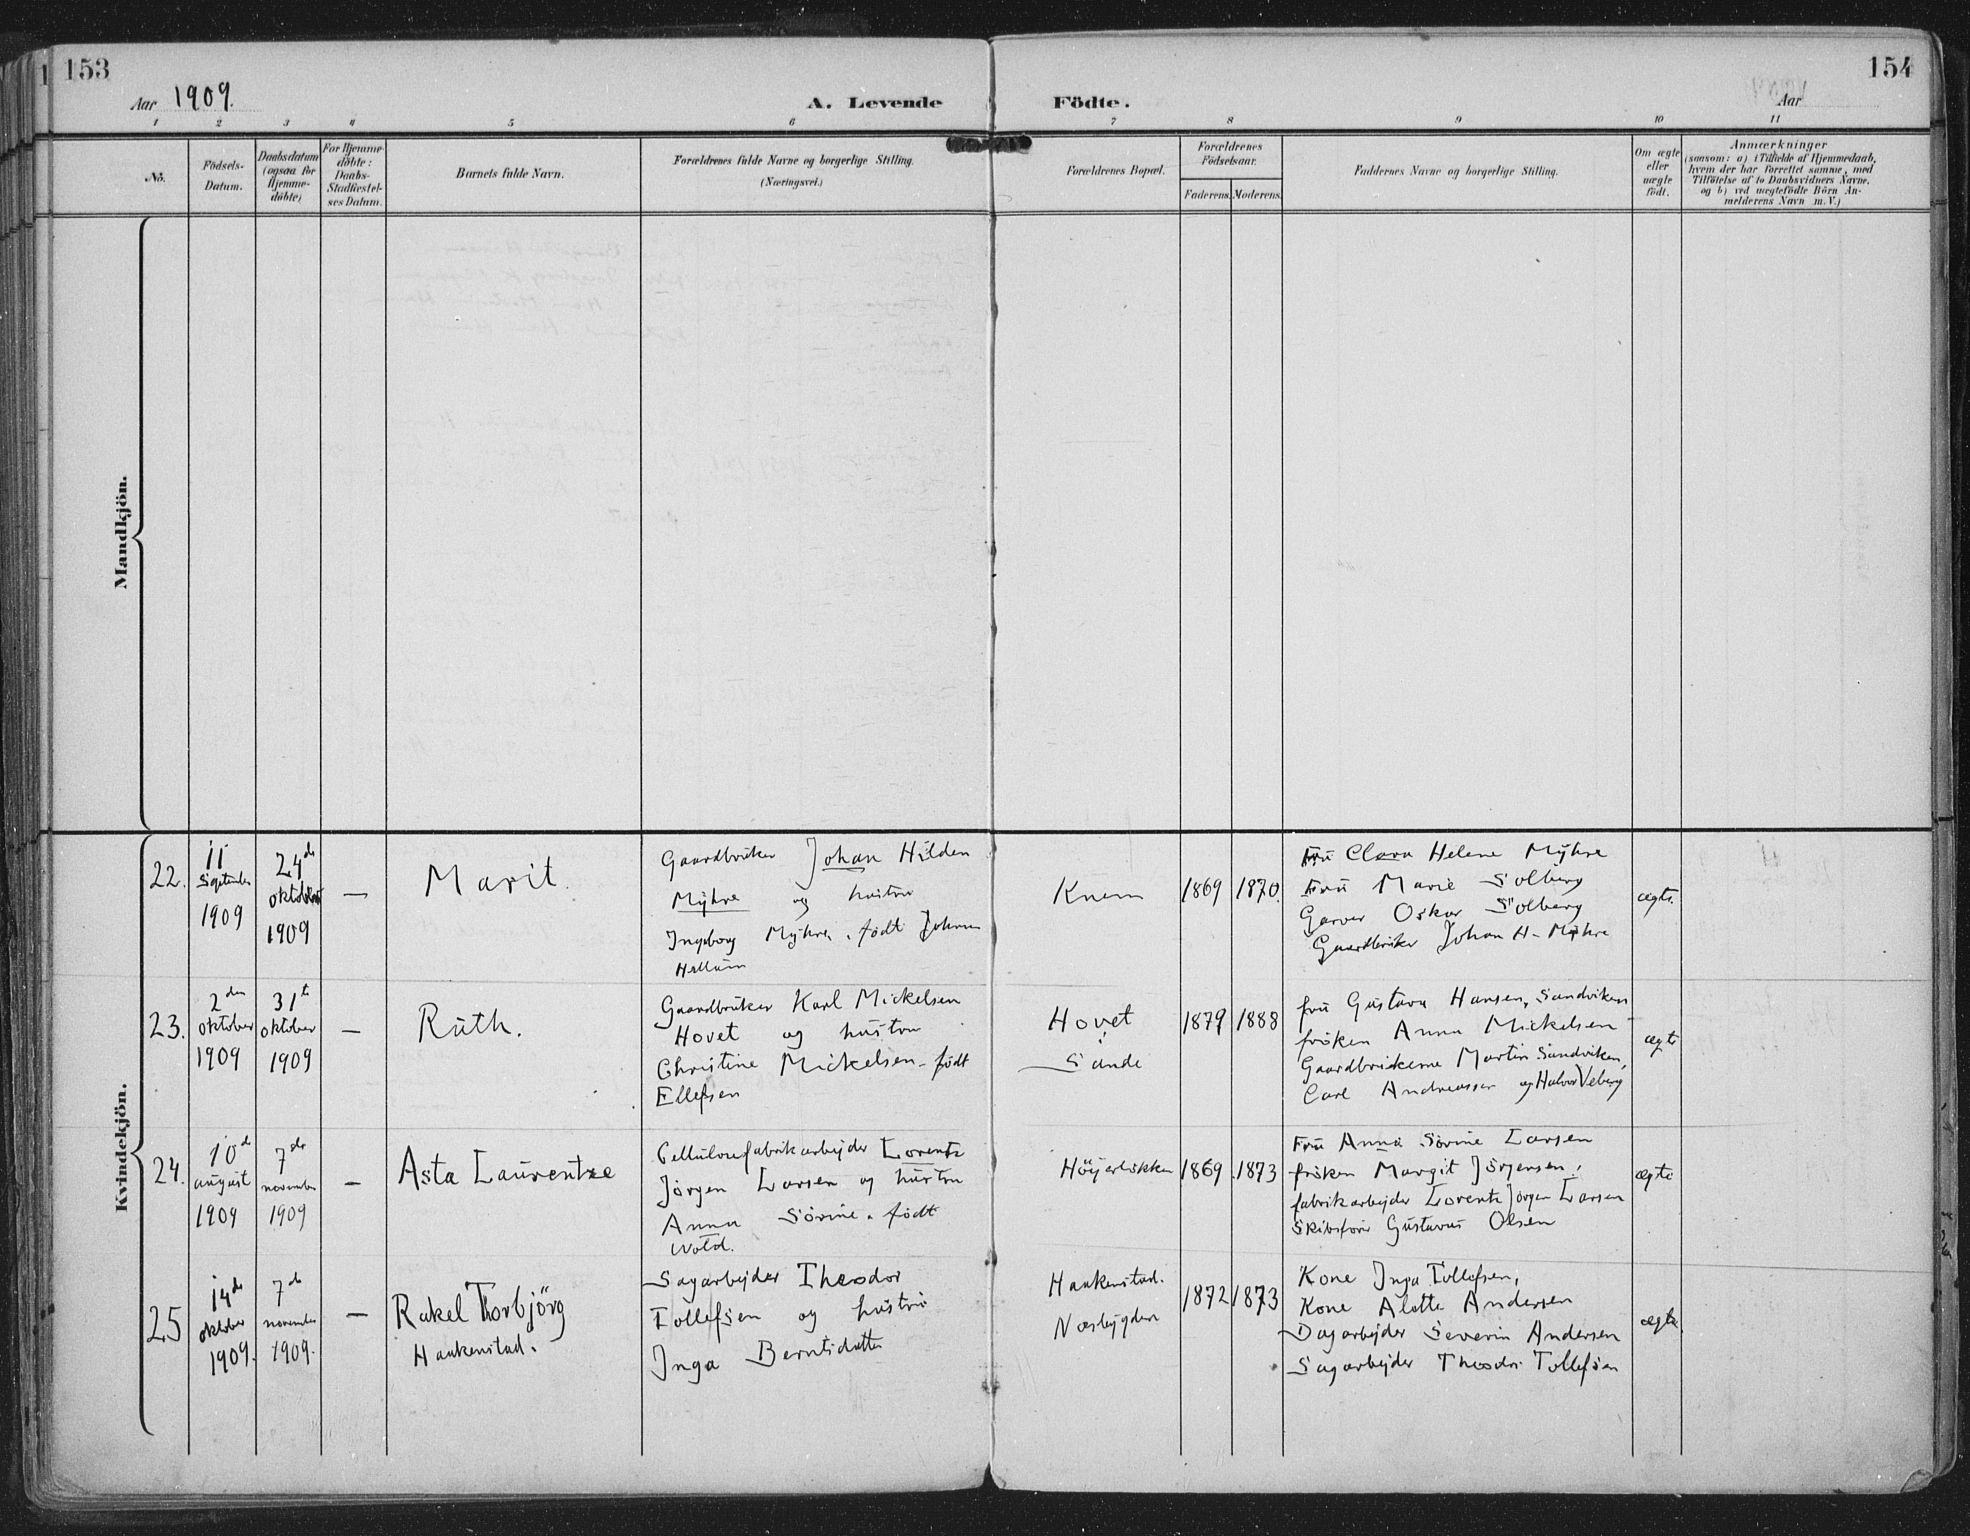 153
154
Aar 1909.
A. Levende Födte.
Aar
1 2 3 4 5 6 7 8 9 10 11
No.
Födsels-
Datum.
Daabsdatum
(ogsaa for
Hjemme-
döbte)
For Hjemme-
döbte:
Daabs-
Stadfæstel-
ses Datum.
Barnets fulde Navn.
Forældrenes fulde Navne og borgerlige Stilling.
(Næringsvei.)
Forældrenes Bopæl.
Forældrenes
Födselsaar.
Faderens. Moderens.
Faddernes Navne og borgerlige Stilling.
Om ægte
eller
uægte
født.
Anmærkninger
(saasom: a) i Tilfælde af Hjemmedaab,
hvem der har forrettet samme, med
Tilföielse af to Daabsvidners Navne,
og b) ved uægtefödte Börn An-
melderens Navn m. V.)
Mandkjön.
Kvindekjön.
22.
11
September
1909
24de
oktober
1909
—
Marit.
Gaardbruker Johan Hilden
Myhre og hustru
Ingeborg Myhre, født Johnsen
Hellum
Knem
1869
1870.
Fru Clara Helene Myhre
Fru Marie Solberg
Garver Oskar Solberg
Gaardbruker Johan H. Myhre
ægte.
23.
2den
oktober
1909
31te
oktober
1909
—
Ruth.
Gaardbruker Karl Mickelsen
Hovet og hustru
Christine Mickelsen født
Ellefsen
Hovet
i
Sande
1879
1888
fru Gustava Hansen, Sandviken
frøken Anna Mickelsen
Gaardbrukerne Martin Sandviken,
Carl Andreassen og Halvor Veberg
ægte
24.
10de
august
1909
7de
november
1909
—
Asta Laurentze
Cellulosefabrikarbejder Lorentz
Jörgen Larsen og hustru
Anna Sörine, født
Wold.
Höijerløkken
1869
1873
Fru Anna Sörine Larsen
frøken Margit Jörgensen,
fabrikarbejder Lorentz Jörgen Larsen
Skibsfører Gustavus Olsen
ægte
25
14de
oktober
1909.
7de
november
1909.
—
Rakel Thorbjörg
Haakenstad.
Sagarbejder Theodor
Tollefsen og hustru
Inga Berntsdatter
Haakenstad.
Næsbygden
1872
1873
Kone Inga Tollefsen,
Kone Alette Andersen
Dagarbejder Severin Andersen
Sagarbejder Theodor Tollefsen
ægte